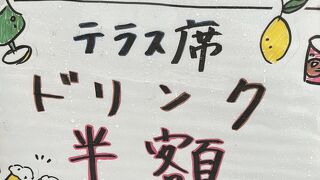 テラス席
ドリンク
半額